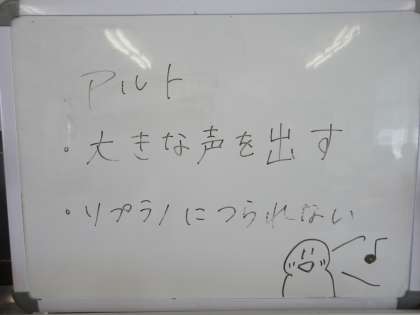 アルト
・大きな声を出す
・ソプラノにつられない